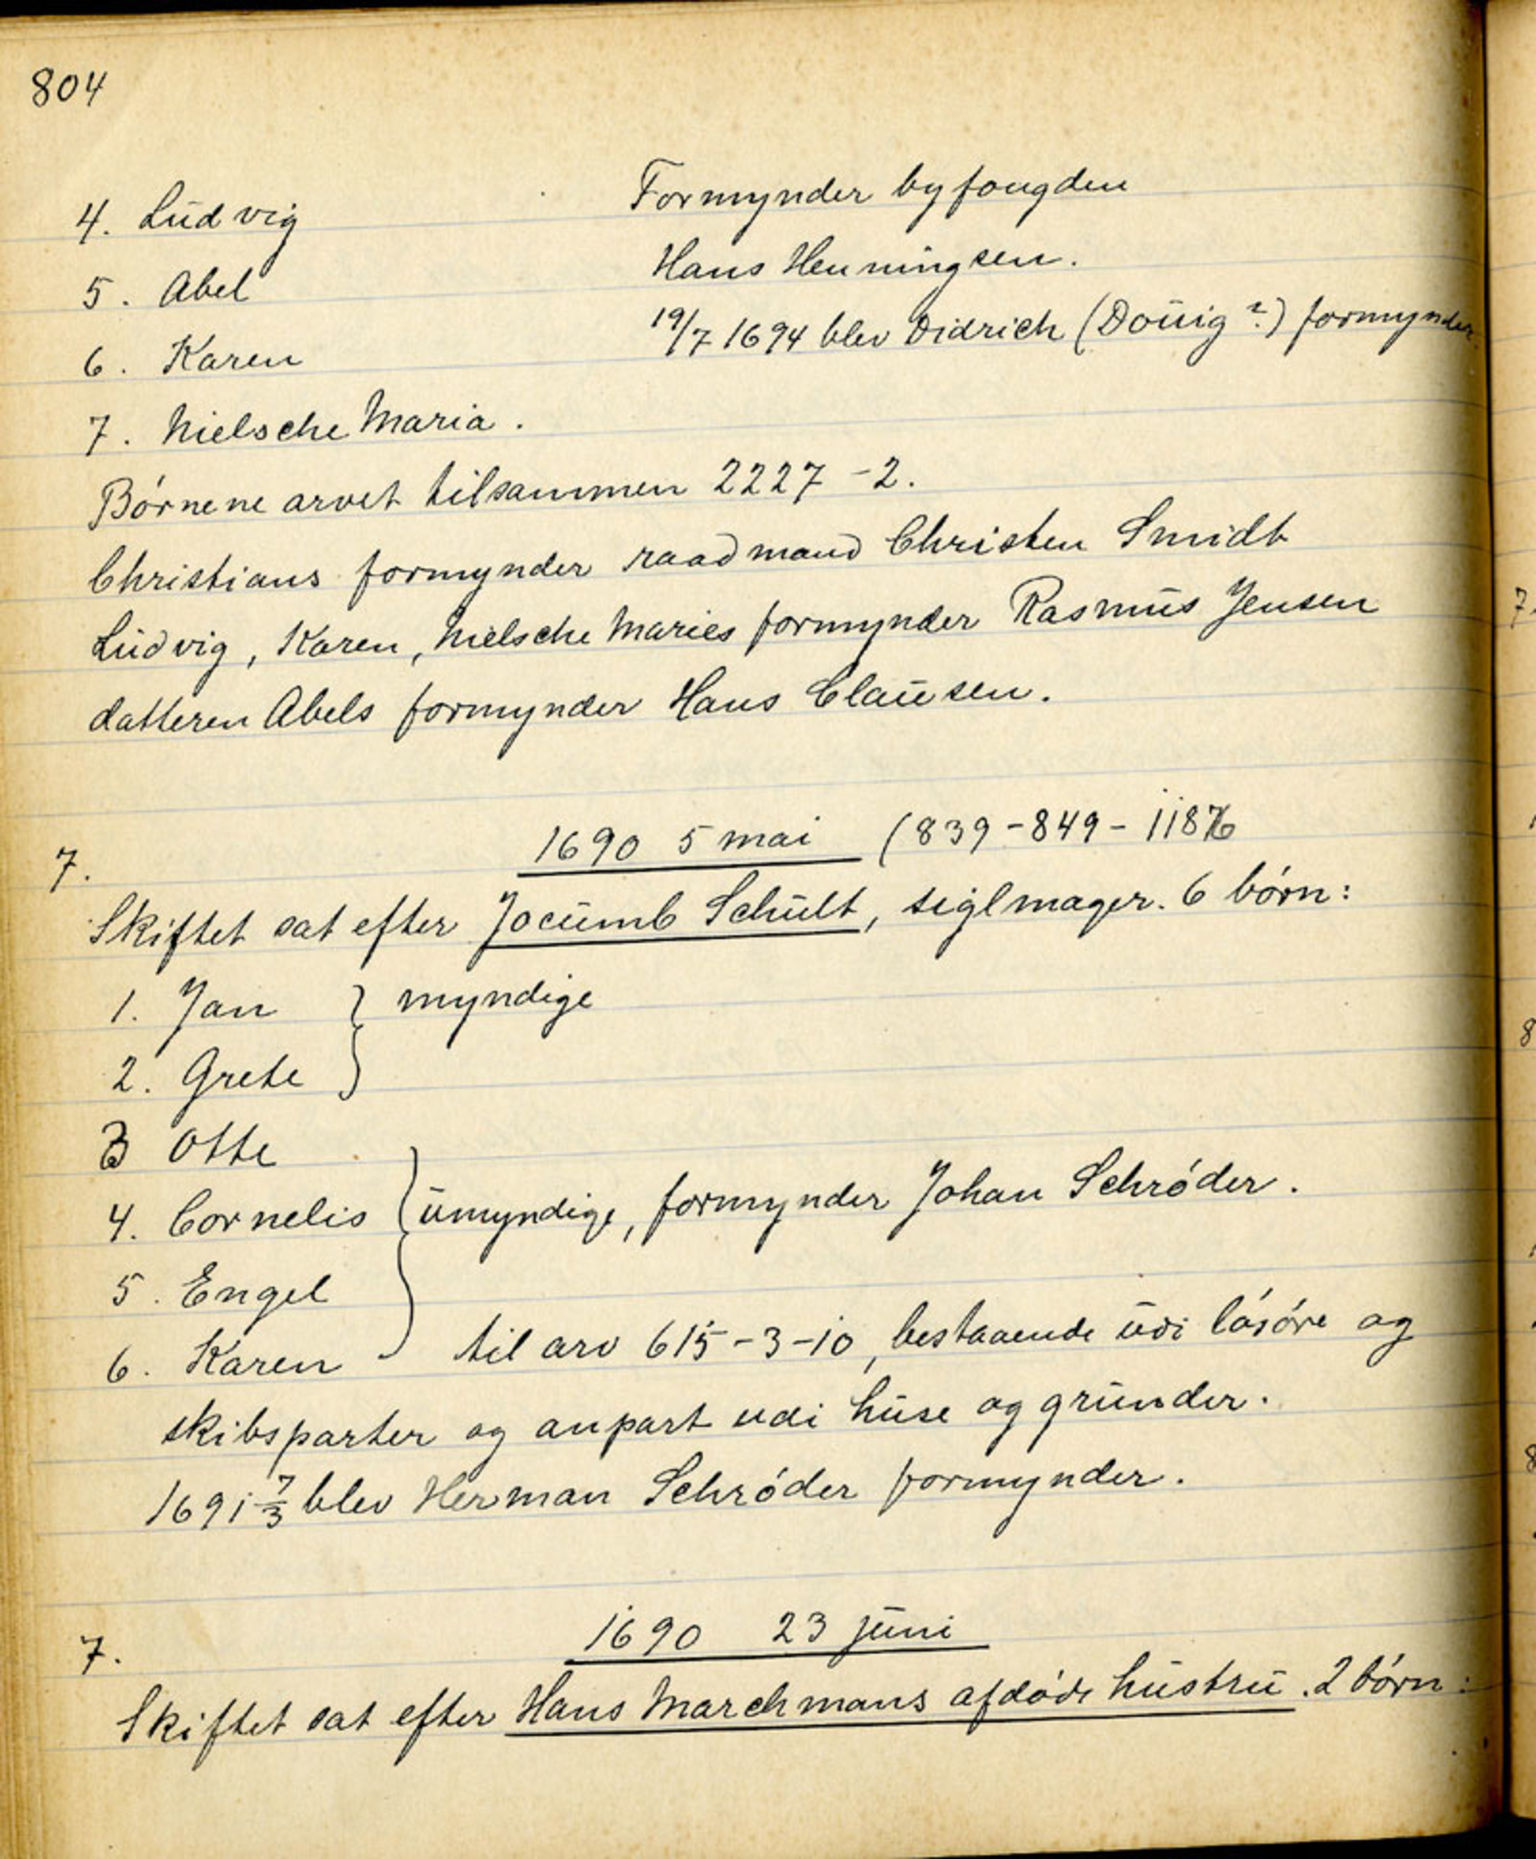 804
4. Ludvig
Formynder byfougden
5. Abel
Hans Henningsen.
6. Karen
19/7 1694 blev Didrich (Douig?) formynder.
7. Nielsche Maria.
Børnene arvet tilsammen 2227-2.
Christians formynder raadmand Christen Smidt
Ludvig, Karen, Nielsche Maries formynder Rasmus Jensen
datteren Abels formynder Hans Clausen.
1690 5 mai (839-849-1187
7.
Skiftet sat efter Jocumb Schult, siglmager. 6 børn:
1. Jan } myndige
2. Grete
3 Otte
4. Cornelis } umyndige, formynder Johan Schrøder.
5. Engel
6. Karen til arv 615-3-10, bestaaende udi løsøre og
skibsparter og anpart udi huse og grunder.
1691 7/3 blev Herman Schrøder formynder.
1690 23 juni
7.
Skiftet sat efter Hans Marchmans afdøde hustru. 2 børn: